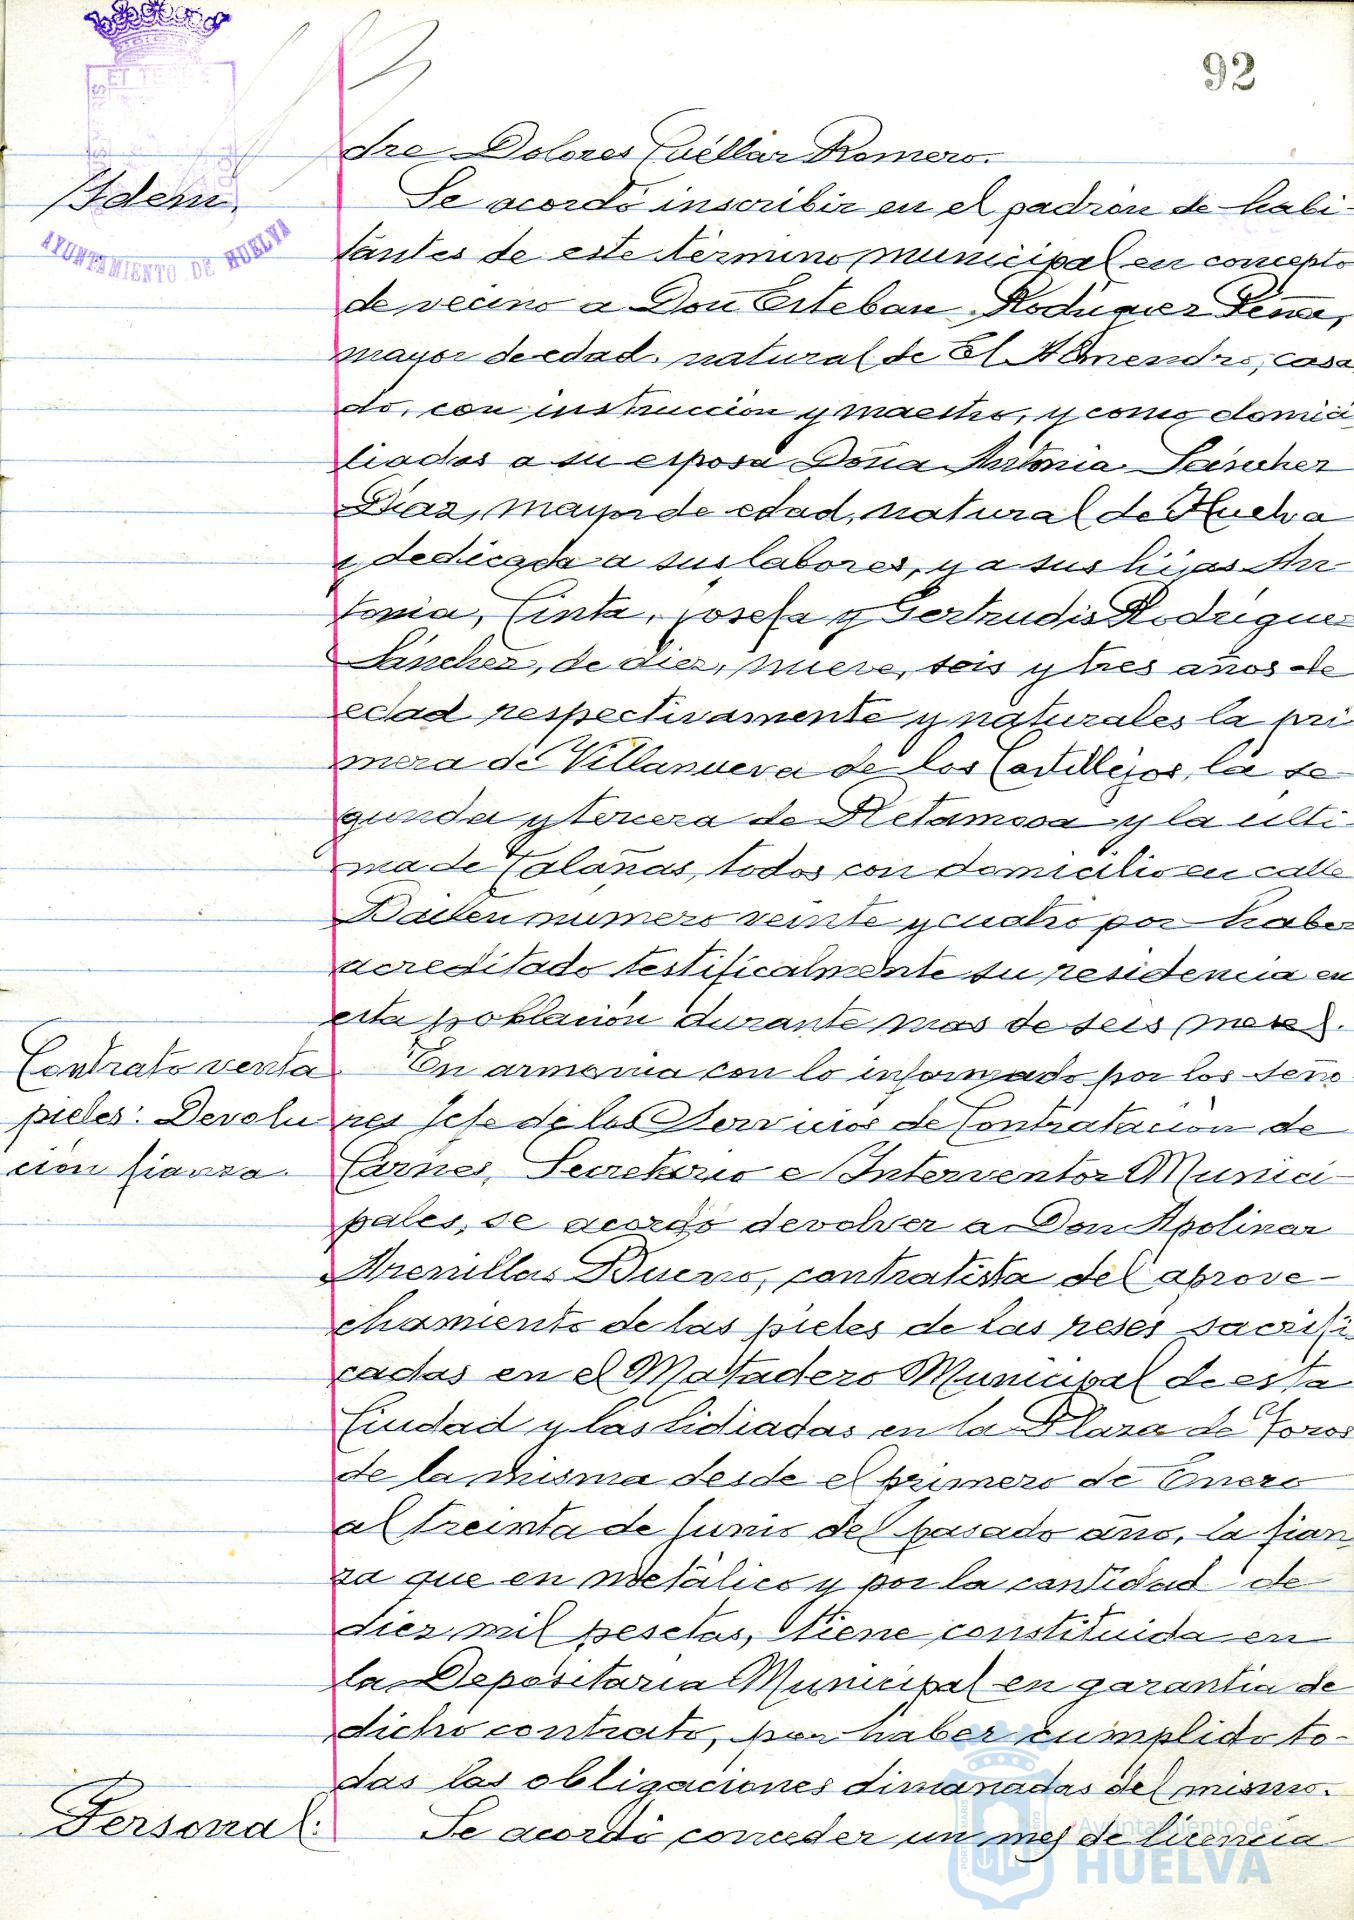 92
dre Dolores Cuéllar Romero.
Idem.
AYUNTAMIENTO DE HUELVA
Se acordó inscribir en el padrón de habi-
tantes de este término municipal en concepto
de vecino a Don Esteban Rodríguez Peña,
mayor de edad, natural de El Almendro, casa
do, con instrucción y maestro, y como domici
liados a su esposa Doña Antonia Sánchez
Díaz, mayor de edad, natural de Huelva
y dedicada a sus labores, y a sus hijas An-
tonia, Cinta, Josefa y Gertrudis Rodríguez
Sánchez, de diez, nueve, seis y tres años de
edad respectivamente y naturales la pri
mera de Villanueva de los Castillejos, la se-
gunda y tercera de Retamosa y la últi-
ma de Calañas, todos con domicilio en calle
Bailen numero veinte y cuatro por haber
acreditado testificalmente su residencia en
esta población durante mas de seis meses.
Contrato venta
pieles: Devolu
ción fianza.
En armonia con lo informado por los seño
res Jefe de los Servicios de Contratación de
Carnes, Secretario e Interventor Munici-
pales, se acordó devolver a Don Apolinar
Arenillas Bueno, contratista del aprove-
chamiento de las pieles de las reses sacrifi
cadas en el Matadero Municipal de esta
Ciudad y las lidiadas en la Plaza de Toros
de la misma desde el primero de Enero
al treinta de Junio del pasado año, la fian
za que en metálico y por la cantidad de
diez mil pesetas, tiene constituida en
la Depositaria Municipal en garantia de
dicho contrato, por haber cumplido to-
das las obligaciones dimanadas del mismo.
Personal:
Se acordó conceder un mes de licencia
Ayuntamiento de
HUELVA